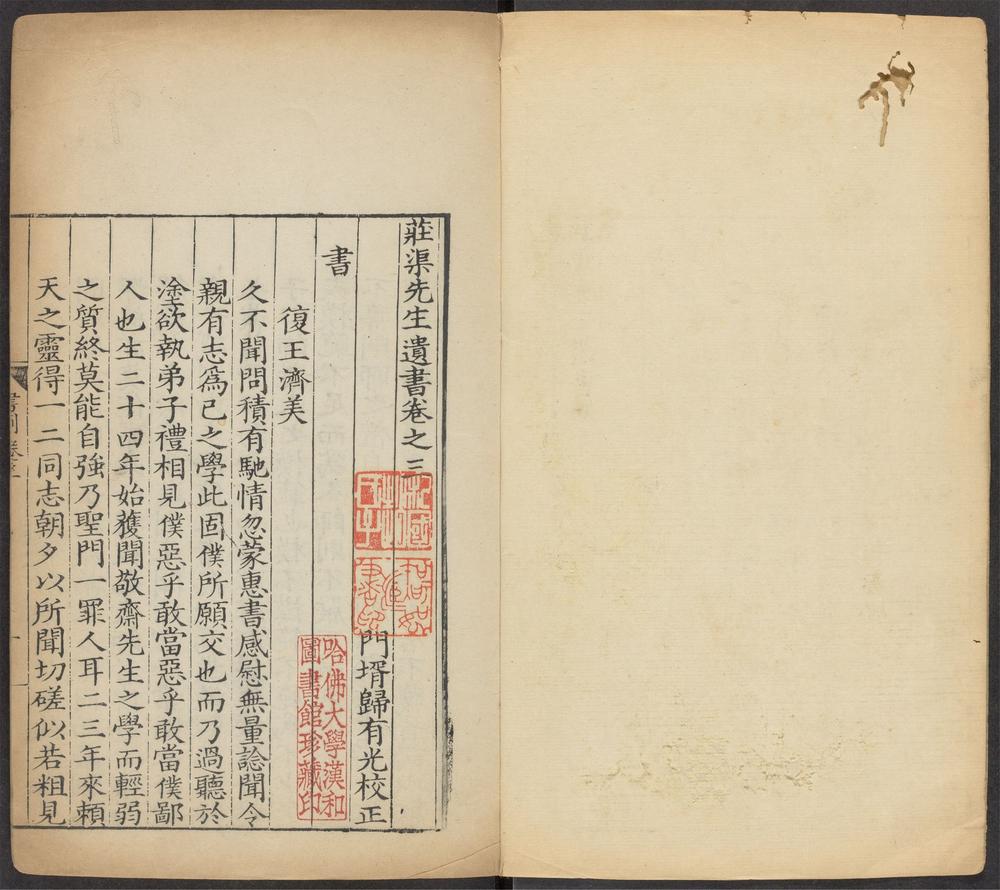 莊渠先生遺書卷之三
門壻歸有光校正
書
復王濟美
久不聞問積有馳情忽蒙惠書感慰無量諗聞令
親有志爲已之學此固僕所願交也而乃過聽於
塗欲執弟子禮相見僕惡乎敢當惡乎敢當僕鄙
人也生二十四年始獲聞敬齋先生之學而輕弱
之質終莫能自強乃聖門一罪人耳二三年來賴
天之靈得一二同志朝夕以所聞切磋似若粗見
哈佛大學漢和
圖書館珍藏印